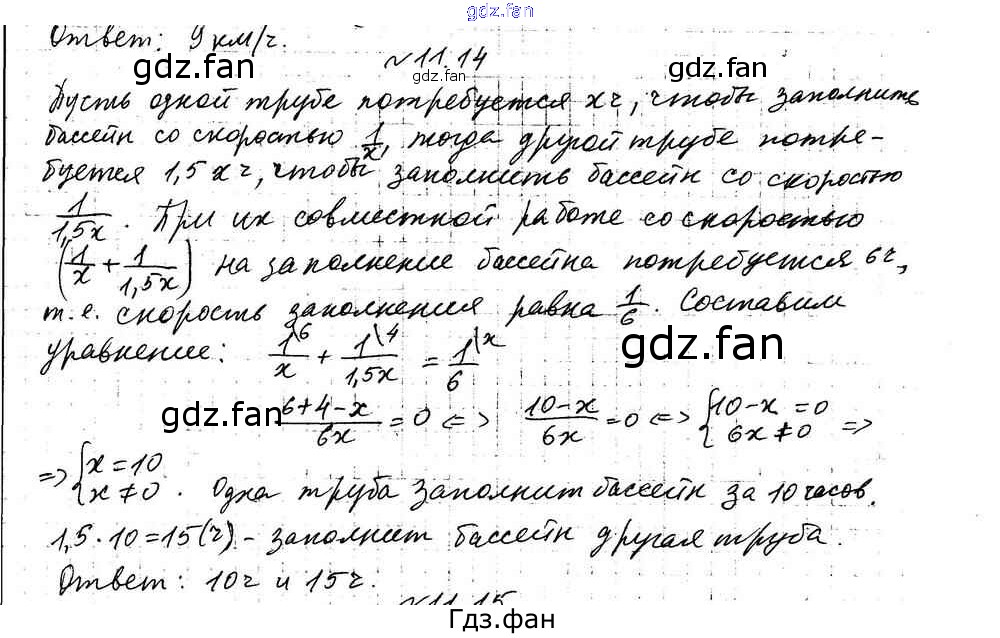 gdz.fan
Ответ: 9 км/ч.
№11.14
gdz.fan gdz.fan gdz.fan
Пусть одной трубе потребуется x ч, чтобы заполнить
бассейн со скоростью 1/x, тогда другой трубе потре-
буется 1,5 x ч, чтобы заполнить бассейн со скоростью
1/1,5x. При их совместной работе со скоростью
(1/x + 1/1,5x) на заполнение бассейна потребуется 6 ч,
т. е. скорость заполнения равна 1/6. Составим
уравнение: 1\6/x + 1\4/1,5x = 1\x/6
gdz.fan
gdz.fan
6+4-x/6x = 0 <=> 10-x/6x = 0 <=> { 10-x = 0 6x ≠ 0 =>
=> { x = 10 x ≠ 0 . Одна труба заполнит бассейн за 10 часов.
1,5 · 10 = 15 (ч) - заполнит бассейн другая труба.
Ответ: 10 ч и 15 ч.
№11.15
Гдз.фан